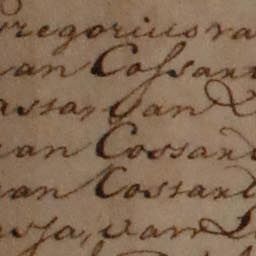 regorius va
an Cossant
assar van
an Cossant
an Costant
van